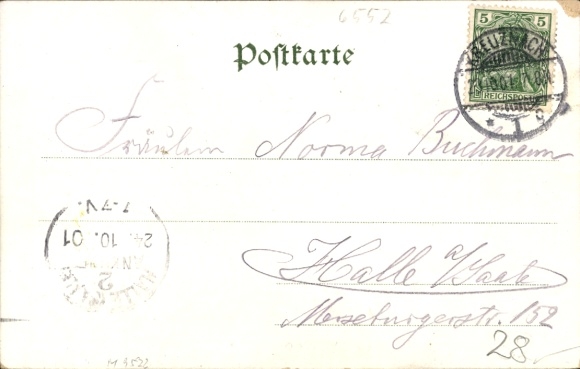 6552
Postkarte
5 5
KREUZNACH
REICHSPOST
1 c
Fräulein Norma Buchmann
7-7V.
24.10.01
2
Halle a/Saale
Merseburgerstr. 152
28